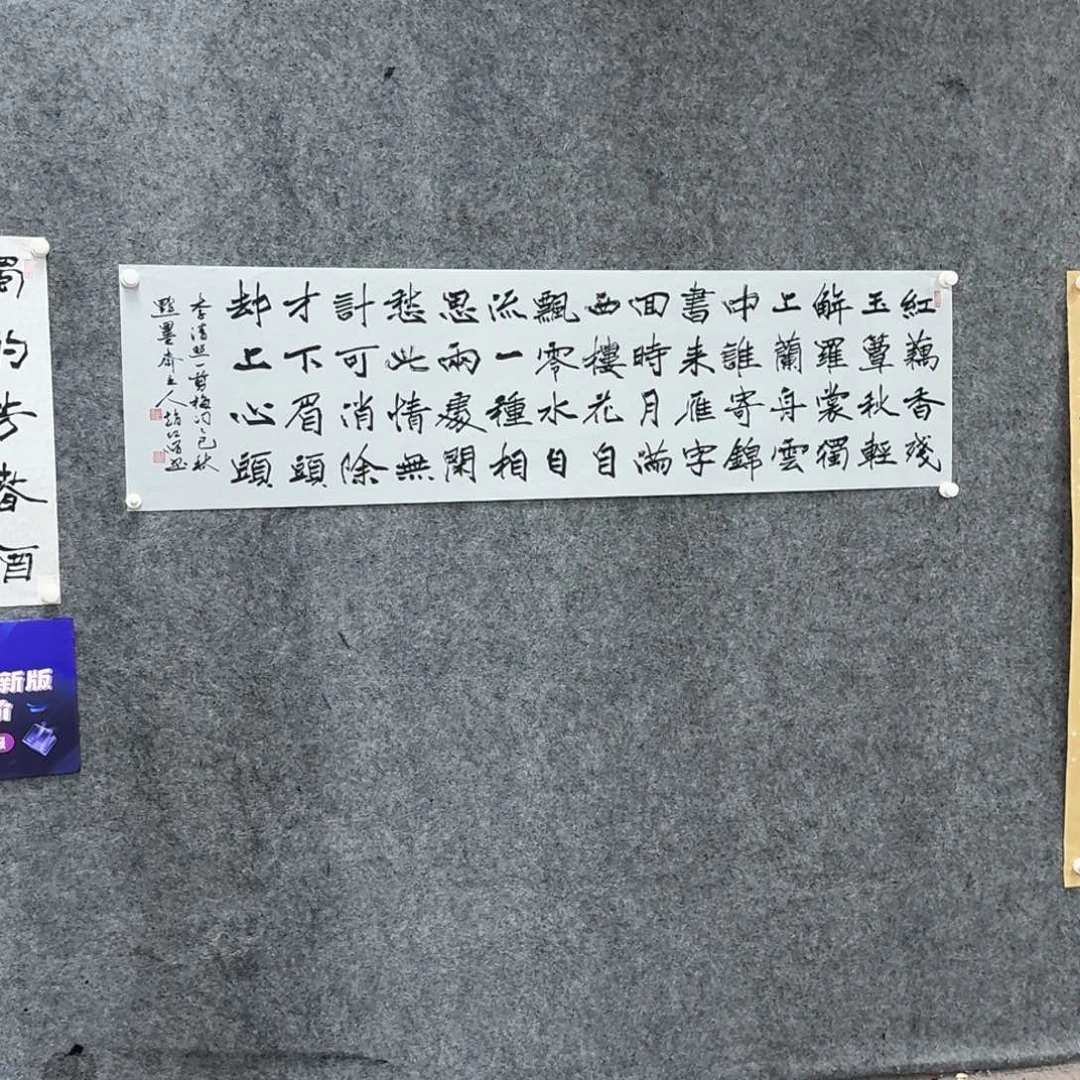 紅藕香殘
玉簟秋輕
解羅裳獨
上蘭舟雲
中誰寄錦
書来雁字
回時月滿
西樓花自
飄零水自
流一種相
思兩處閑
愁此情無
計可消除
才下眉頭
却上心頭
李清照一剪梅詞乙巳秋
點墨齋主人趙
新版